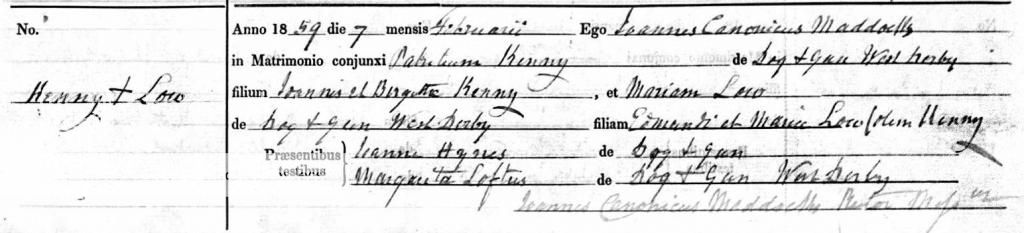 No.
Anno 1859 die 7 mensis Februarii Ego Joannes Canonicus Maddocks
in Matrimonio conjunxi Patritium Kenny de Dog & Gun West Derby
Kenny + Low
filium Joannis et Birgittæ Kenny, et Mariam Low
de Dog & Gun West Derby filiam Edmundi et Mariæ Low (olim Kenny
Præsentibus testibus
Joanne Hynes de Dog & Gun
Margarita Loftus de Dog & Gun West Derby
Joannes Canonicus Maddocks Rector Miss